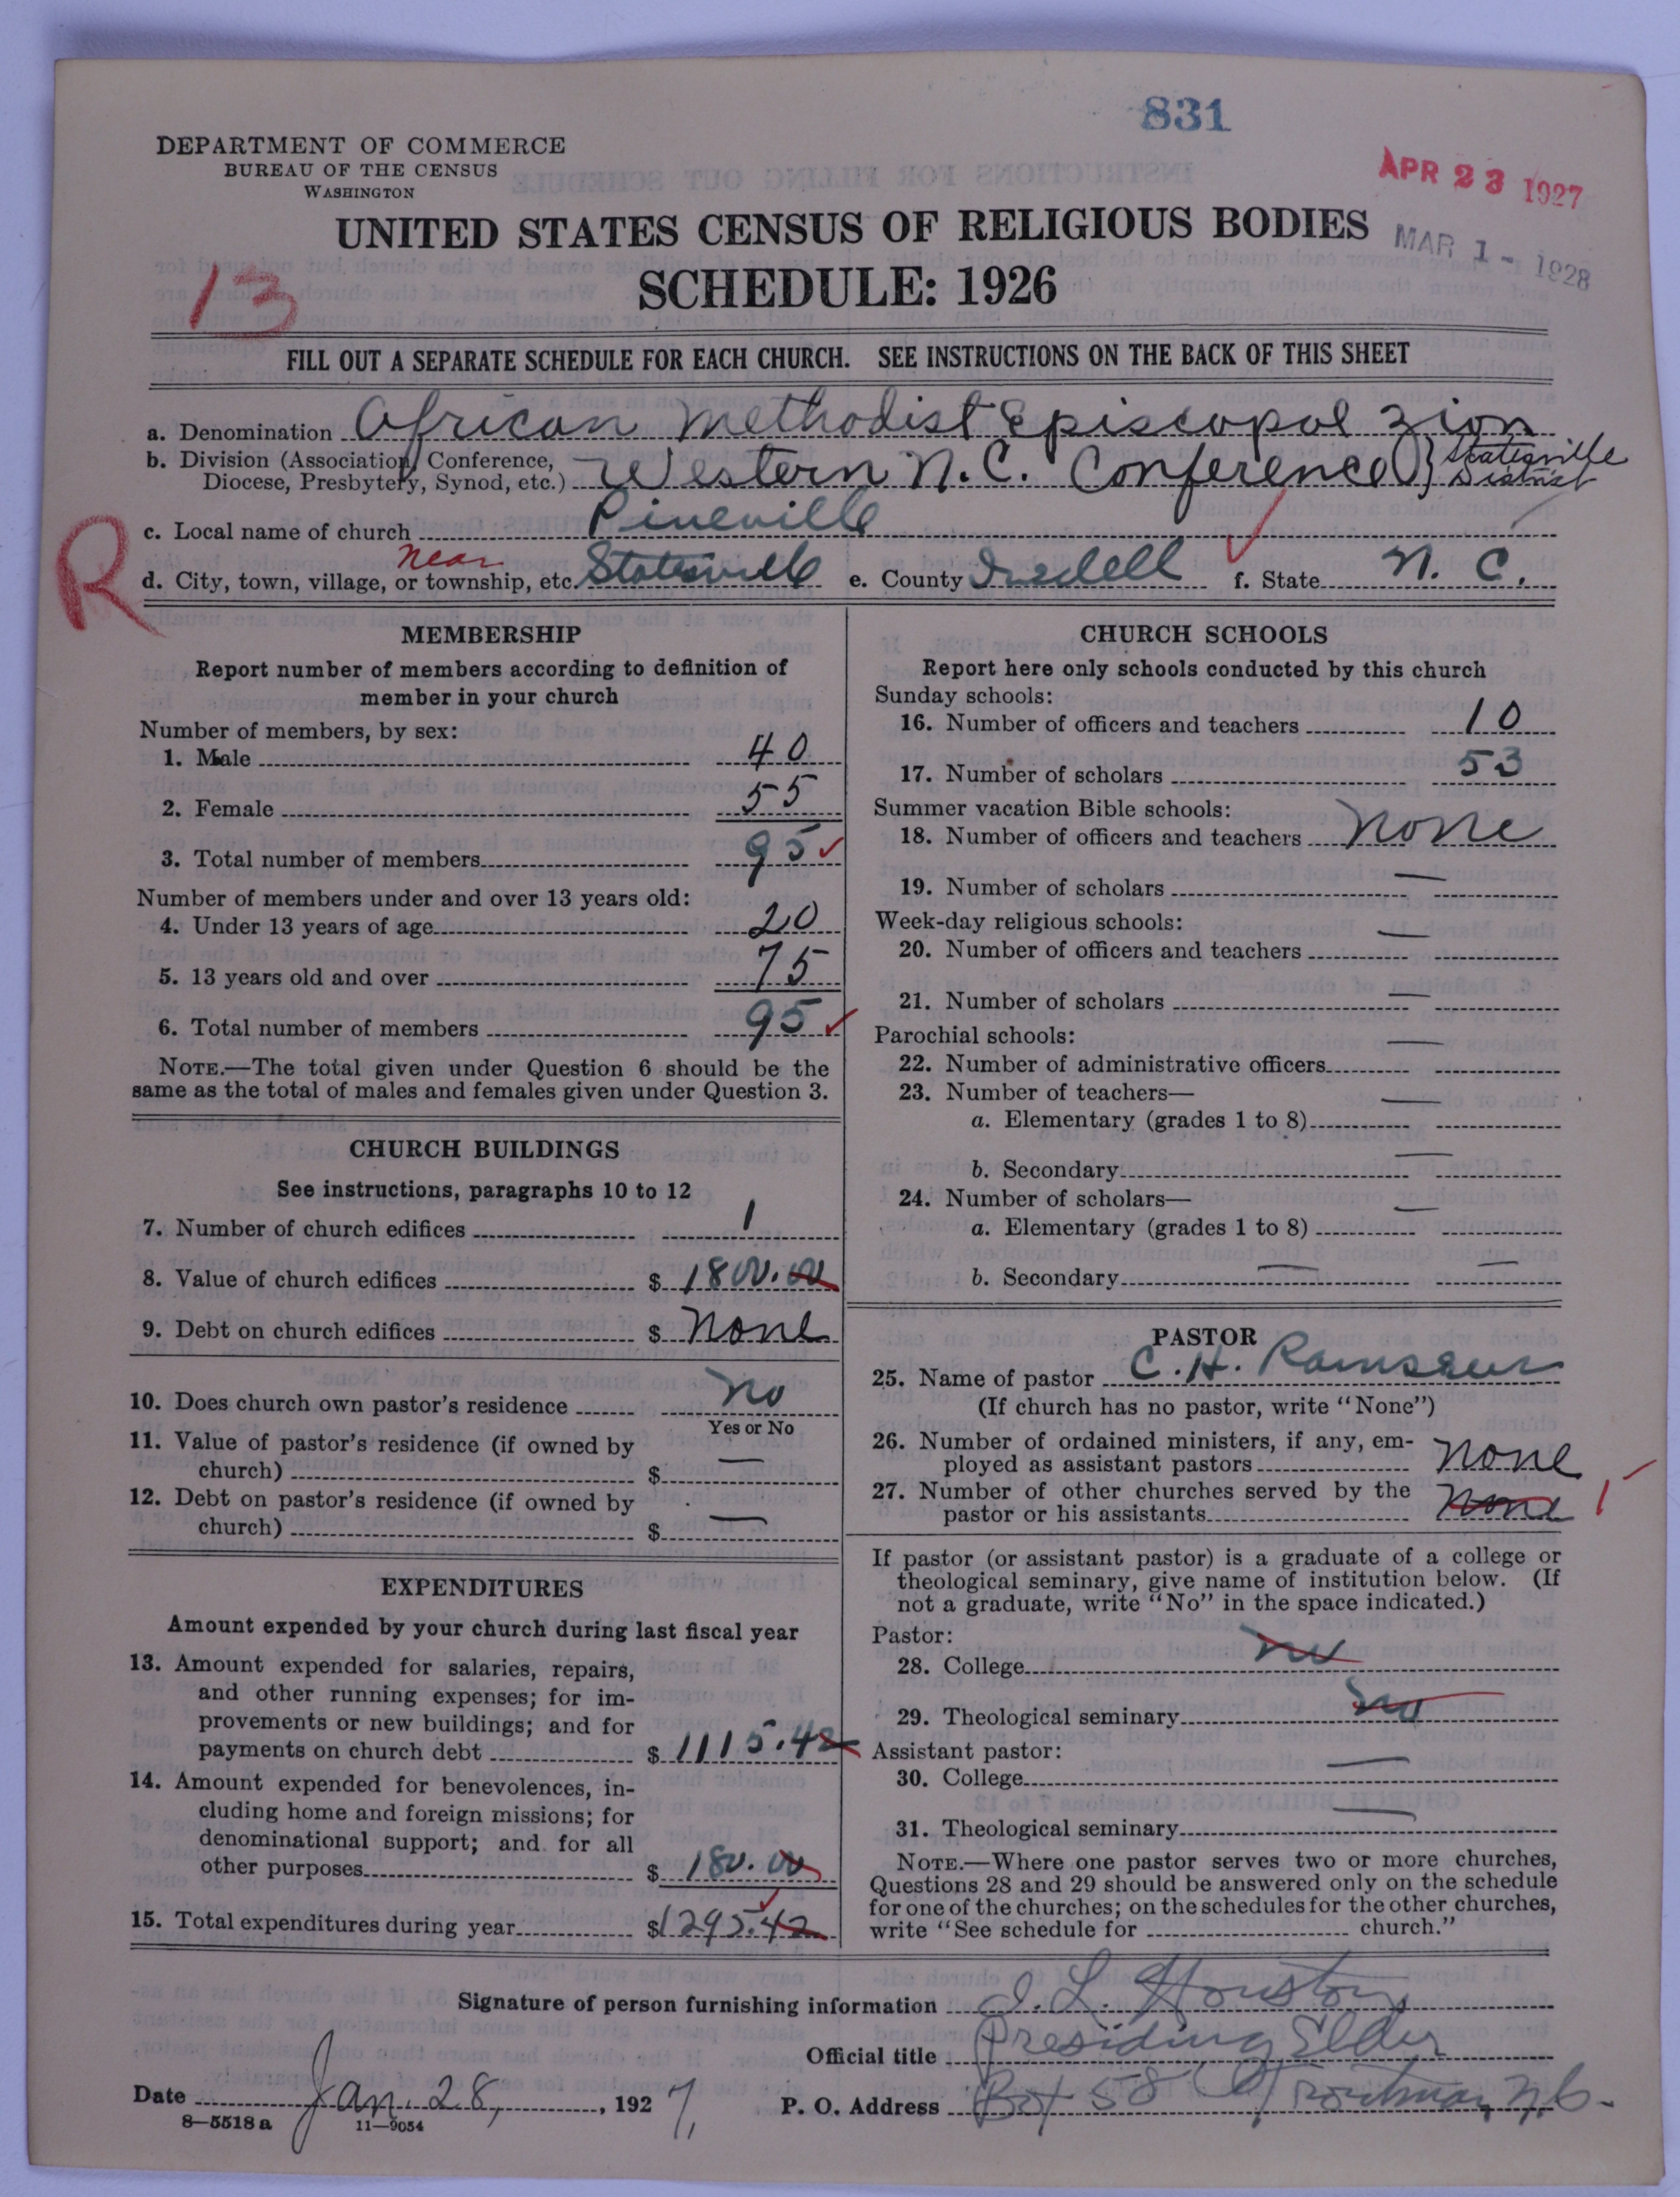 831
DEPARTMENT OF COMMERCE
BUREAU OF THE CENSUS
WASHINGTON
APR 23 1927
UNITED STATES CENSUS OF RELIGIOUS BODIES
MAR 1 - 1928
13
SCHEDULE: 1926
FILL OUT A SEPARATE SCHEDULE FOR EACH CHURCH. SEE INSTRUCTIONS ON THE BACK OF THIS SHEET
a. Denomination African Methodist Episcopal Zion
b. Division (Association, Conference, Diocese, Presbytery, Synod, etc.) Western N.C. Conference } Statesville District
c. Local name of church Pineville
R
d. City, town, village, or township, etc. near Statesville e. County Iredell f. State N. C.
MEMBERSHIP
Report number of members according to definition of
member in your church
Number of members, by sex:
1. Male 40
2. Female 55
3. Total number of members 95
Number of members under and over 13 years old:
4. Under 13 years of age 20
5. 13 years old and over 75
6. Total number of members 95
NOTE.—The total given under Question 6 should be the
same as the total of males and females given under Question 3.
CHURCH BUILDINGS
See instructions, paragraphs 10 to 12
7. Number of church edifices 1
8. Value of church edifices $ 1800.00
9. Debt on church edifices $ None
10. Does church own pastor's residence No
Yes or No
11. Value of pastor's residence (if owned by
church) $ —
12. Debt on pastor's residence (if owned by
church) $ —
EXPENDITURES
Amount expended by your church during last fiscal year
13. Amount expended for salaries, repairs,
and other running expenses; for im-
provements or new buildings; and for
payments on church debt $ 1115.42
14. Amount expended for benevolences, in-
cluding home and foreign missions; for
denominational support; and for all
other purposes $ 180.00
15. Total expenditures during year $1295.42
CHURCH SCHOOLS
Report here only schools conducted by this church
Sunday schools:
16. Number of officers and teachers 10
17. Number of scholars 53
Summer vacation Bible schools:
18. Number of officers and teachers None
19. Number of scholars —
Week-day religious schools:
20. Number of officers and teachers —
21. Number of scholars —
Parochial schools:
22. Number of administrative officers —
23. Number of teachers—
a. Elementary (grades 1 to 8) —
b. Secondary —
24. Number of scholars—
a. Elementary (grades 1 to 8) —
b. Secondary — —
PASTOR
25. Name of pastor C. H. Ramseur
(If church has no pastor, write "None")
26. Number of ordained ministers, if any, em-
ployed as assistant pastors None
27. Number of other churches served by the
pastor or his assistants None 1
If pastor (or assistant pastor) is a graduate of a college or
theological seminary, give name of institution below. (If
not a graduate, write "No" in the space indicated.)
Pastor:
28. College No
29. Theological seminary No
Assistant pastor:
30. College —
31. Theological seminary —
NOTE.—Where one pastor serves two or more churches,
Questions 28 and 29 should be answered only on the schedule
for one of the churches; on the schedules for the other churches,
write "See schedule for church."
Signature of person furnishing information J. L. Houston
Official title Presiding Elder
Date Jan. 28, 1927 P. O. Address Box 58 Troutman, N.C.
8—5518a 11—9054